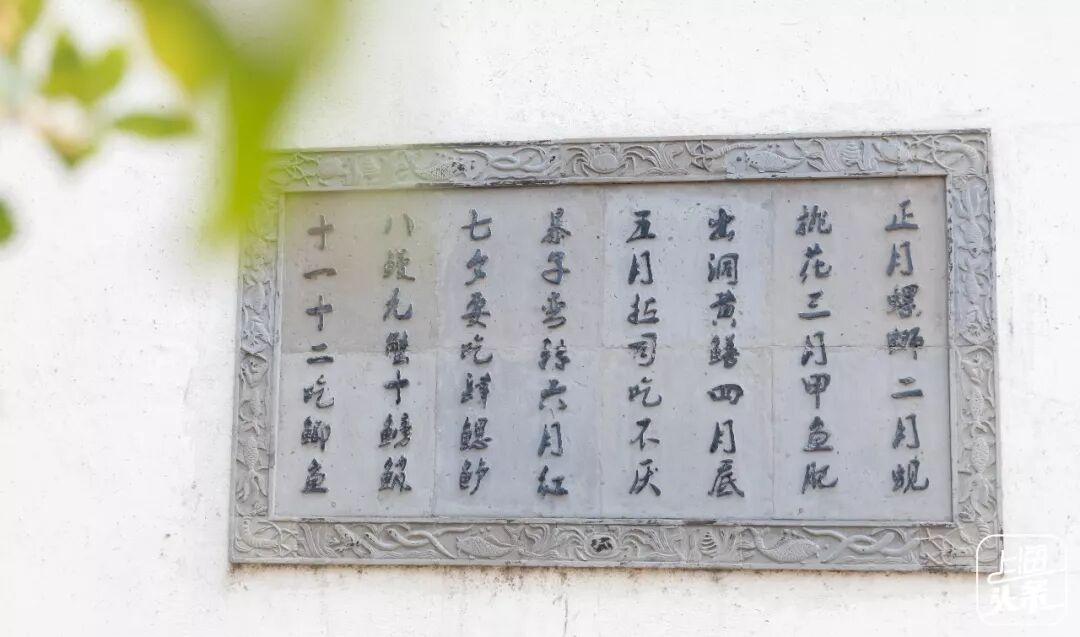 正月螺蛳二月蚬
桃花三月甲鱼肥
出洞黄鳝四月底
五月拉司吃不厌
暴子尝鲜六月红
七夕要吃鳃
八鳗九蟹十鳑鲏
十一十二吃鲫鱼
上海
头条